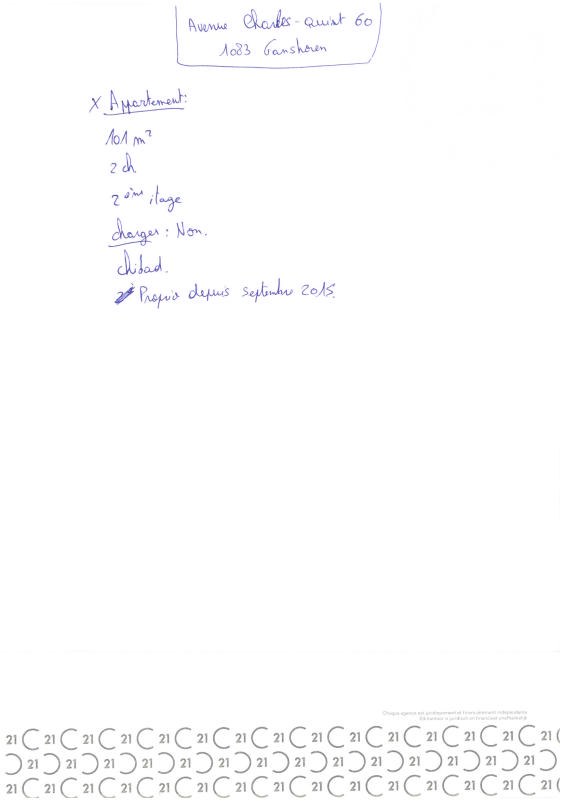 Avenue Charles-Quint 60
1083 Ganshoren
x Appartement:
101 m²
2 ch
2ème étage
charges : Non.
Proprio depuis septembre 2015.
Chaque agence est juridiquement et financièrement indépendante
Elk kantoor is juridisch en financieel onafhankelijk
21 C 21 C 21 C 21 C 21 C 21 C 21 C 21 C 21 C 21 C 21 C 21 C 21 C 21 C 21
21 21 21 21 21 21 21 21 21 21 21 21 21 21
21 C 21 C 21 C 21 C 21 C 21 C 21 C 21 C 21 C 21 C 21 C 21 C 21 C 21 C 21